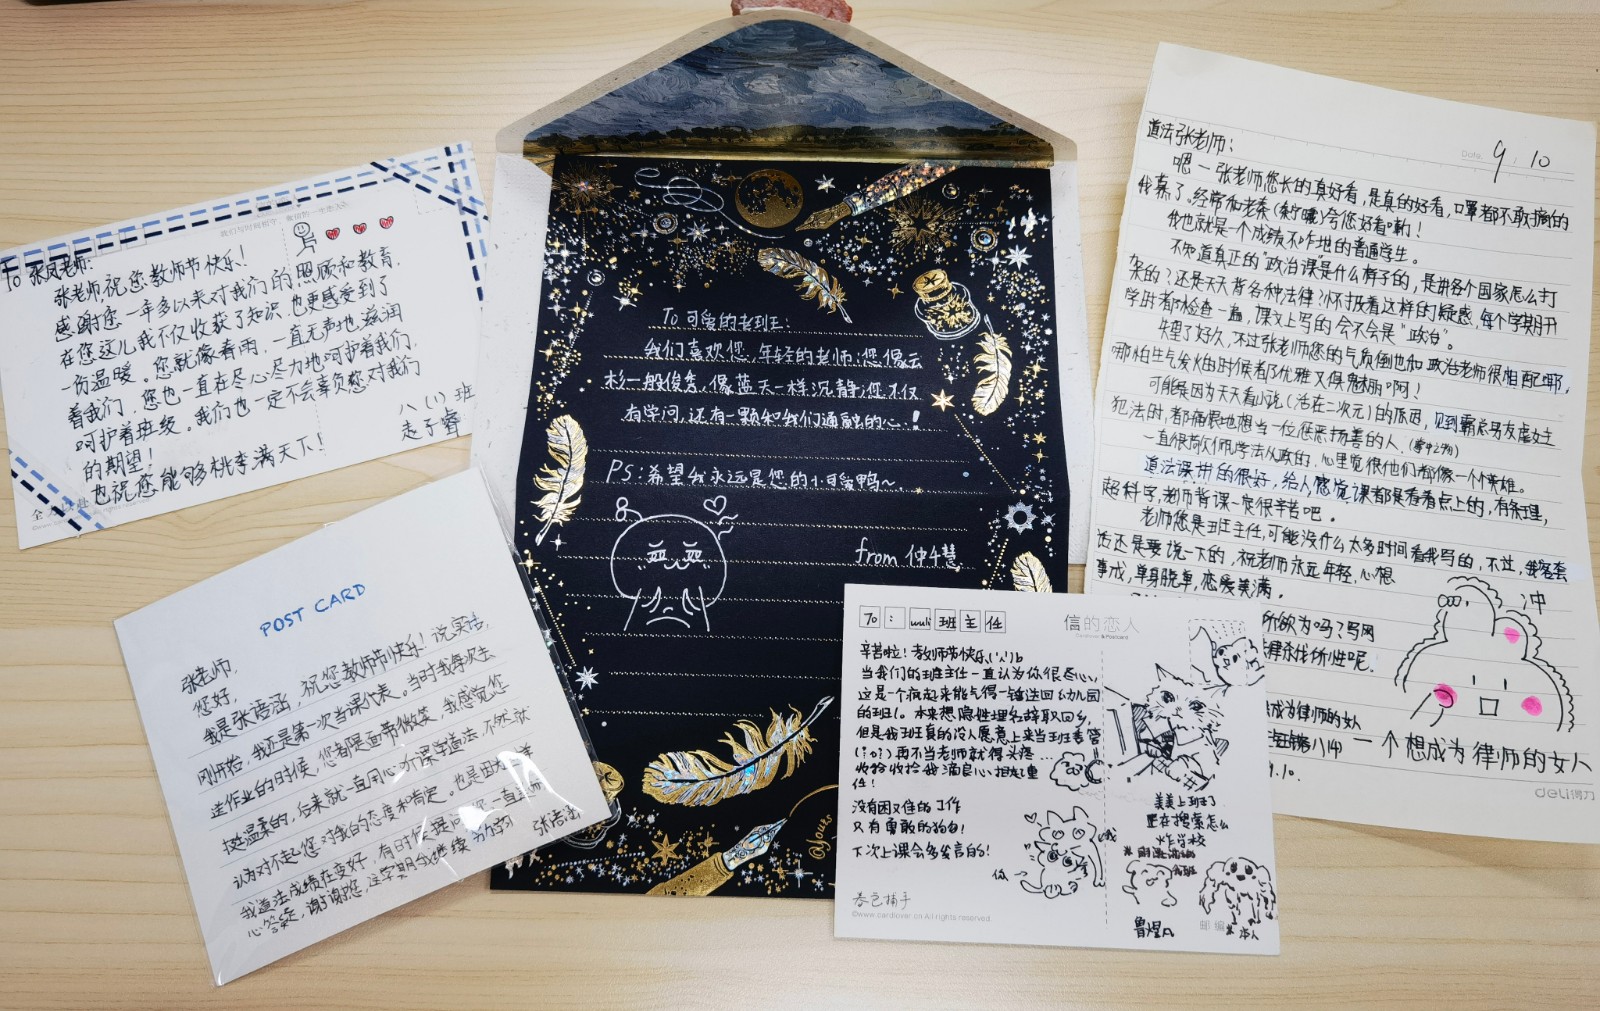 To 张凤老师:
张老师,祝您教师节快乐!
感谢您一年多以来对我们的照顾和教育,
在您这儿我不仅收获了知识,也更感受到了
一份温暖。您就像春雨,一直无声地滋润
着我们,您也一直在尽心尽力地呵护着我们,
呵护着班级。我们也一定不会辜负您对我们
的期望!
也祝您能够桃李满天下!
八(1)班
赵子睿
POST CARD
张老师,
您好,
我是张语涵,祝您教师节快乐!说实话,
刚开始,我还是第一次当课代表。当时我每次去
送作业的时候,您都是面带微笑,我感觉您
挺温柔的,后来就一直用心听课学道法,不然就
认为对不起您对我的态度和肯定。也是因为
我道法成绩在变好,有时候提问
心答疑,谢谢您,这学期我继续
张语涵
To 可爱的老班王:
我们喜欢您,年轻的老师:您像云
杉一般俊秀,像蓝天一样沉静;您不仅
有学问,还有一颗和我们通融的心!
PS:希望我永远是您的小可爱鸭~
from 仲午慧
@Yours
9.10
道法张老师:
嗯一张老师您长的真好看,是真的好看,口罩都不敢摘的
我慕了。经常和老秦(秦宁曦)夸您好看喇!
我也就是一个成绩不咋地的普通学生。
不知道真正的“政治课”是什么样子的,是讲各个国家怎么打
杂的?还是天天背各种法律?怀揣着这样的疑惑,每个学期开
学时都检查一遍,课文上写的会不会是“政治”。
失望了好久,不过张老师您的气质倒也和政治老师很相配耶,
哪怕生气发火的时候都优雅又得魅丽啊!
可能是因为天天看小说(活在二次元)的原因,见到霸总男友虐女主
犯法时,都痛恨地想当一位惩恶扬善的人
一直很欣仰学法从政的,心里觉很他们都像一个个英雄。
道法课讲的很好,给人感觉课都是看着点上的,有条理,
超科学,老师背课一定很辛苦吧。
老师您是班主任,可能没什么太多时间看我写的,不过,我客套
话还是要说一下的,祝老师永远年轻,心想
事成,单身脱单,恋爱美满。
所欲为吗?写网
成为律师的女人
冲
一个想成为律师的女人
9.10.
deli得力
To:wuli班主任
信的恋人
辛苦啦!教师节快乐
当我们的班主任一直认为你很尽心,
这是一个疯起来能气得一锤送回幼儿园
的班儿。本来想隐姓埋名辞职回乡,
但是我班真的没人愿意上来当班委管
再不当老师就得头疼...
收拾收拾我滴良心担起重
任!
没有困又佳的工作
只有勇敢的狗勾!
下次上课会多发言的!
美美上班了
正在搜索怎么
炸学校
邮编
©www.cardlover.cn All rights reserved.